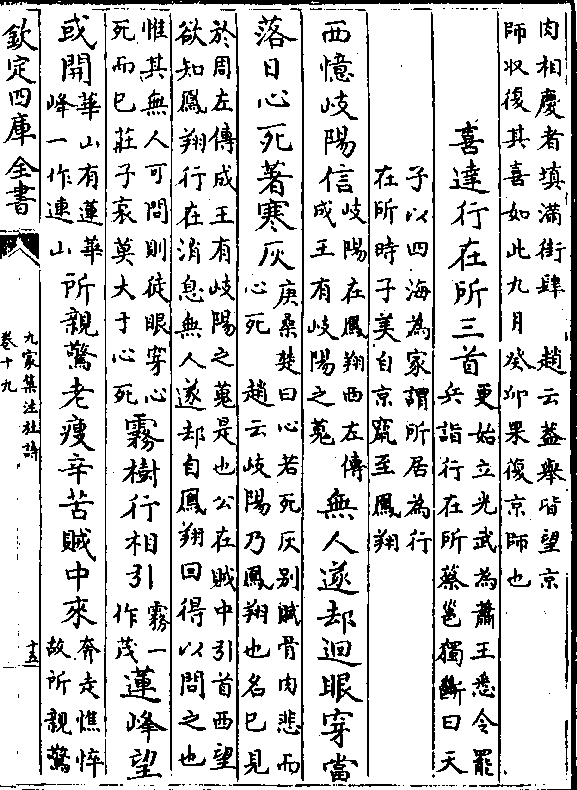 肉相慶者填滿街肆　趙云益舉皆望京
師収復其喜如此九月癸卯果復京師也
喜達行在所三首
更始立光武為蕭王悉令罷
兵詣行在所蔡邕獨斷曰天
子以四海為家謂所居為行
在所時子美自京竄至鳳翔
西憶岐陽信
岐陽在鳳翔西左傳
成王有岐陽之蒐
無人遂却迴眼穿當
落日心死著寒灰
庚桑楚曰心若死灰别賦骨肉悲而
心死　趙云岐陽乃鳳翔也名已見
於周左傳成王有岐陽之蒐是也公在賊中引首西望
欲知鳳翔行在消息無人遂却自鳳翔回得以問之也
惟其無人可問則徒眼穿心
死而已莊子哀莫大于心死
霧樹行相引
霧一
作茂
蓮峰望
或開
華山有蓮華
峰一作連山
所親驚老瘦辛苦賊中來
奔走憔悴
故所親驚
欽定四庫全書
九家集注杜詩
卷十九
十五